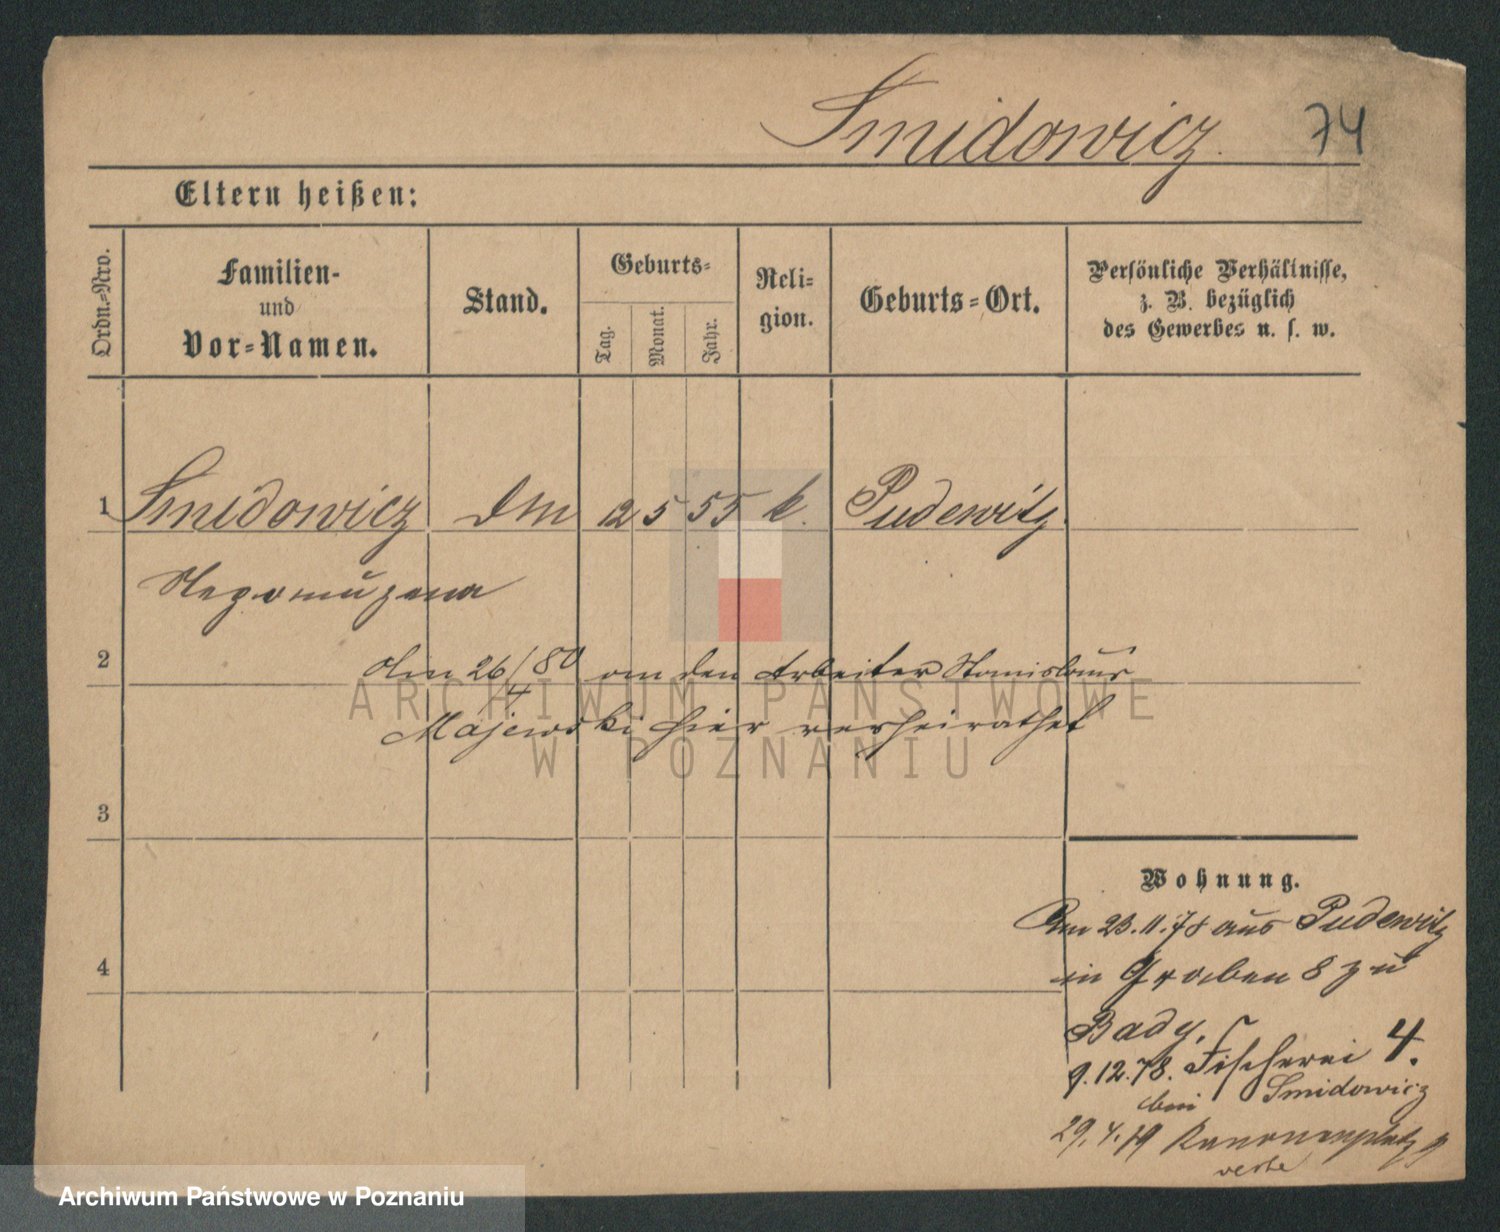 Smidowicz 74
Eltern heißen:
Ordn.-Nro.
Familien-
und
Vor-Namen.
Stand.
Geburts-
Tag.
Monat.
Jahr.
Reli-
gion.
Geburts-Ort.
Persönliche Verhältnisse,
z. B. bezüglich
des Gewerbes u. s. w.
1 Smidowicz 12 5 55 k. Pudewitz
Nepomuzena
2
26/4 80 an den Arbeiter Stanislaus
Majewski hier verheirathet
3
4
Wohnung.
Am 23.11.78 aus Pudewitz
in Graben 8 zu
Bady,
9.12.78. Fischerei 4.
bei Smidowicz
29.4.79 Kanonenplatz 9
ARCHIWUM PAŃSTWOWE
W POZNANIU
Archiwum Państwowe w Poznaniu